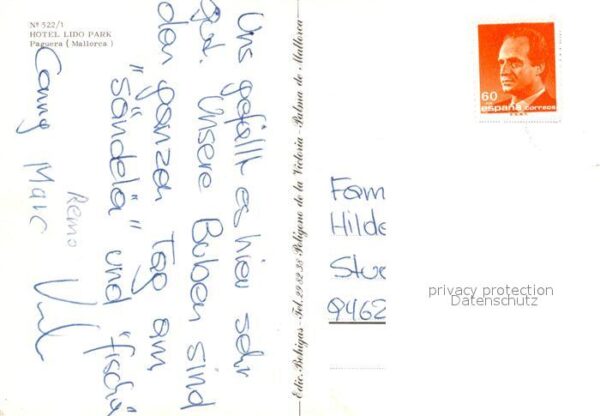 Nº 522/1
HOTEL LIDO PARK
Paguera (Mallorca)
Uns gefällt es hier sehr
gut. Unsere Buben sind
den ganzen Tag am
"sändelä" und "fischä
Conny Marc
Remo
Edic. Bohigas - Tel. 29 82 38 Polígono de la Victoria - Palma de Mallorca
60
españa correos
Fam
Hilde
9462
privacy protection
Datenschutz